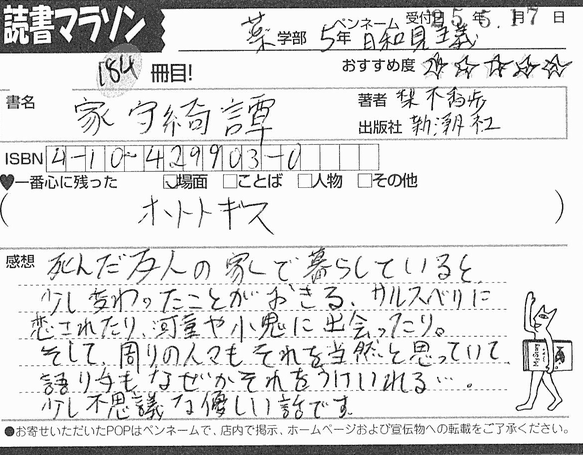 読書マラソン
薬学部 5年 ペンネーム 日和見主義 受付日 05年 5月17日
184冊目!
おすすめ度 ☆☆☆☆☆
書名 家守綺譚
著者 梨木香歩
出版社 新潮社
ISBN 4-10-429903-0
♥一番心に残った ☑場面 □ことば □人物 □その他
(ホトトギス)
感想 死んだ友人の家で暮らしていると
少し変わったことがおきる、サルスベリに
恋されたり、河童や小鬼に出会ったり。
そして、周りの人々もそれを当然と思っていて、
語り手もなぜかそれをうけいれる…。
少し不思議な優しい話です
●お寄せいただいたPOPはペンネームで、店内で掲示、ホームページおよび宣伝物への転載をご了承ください。